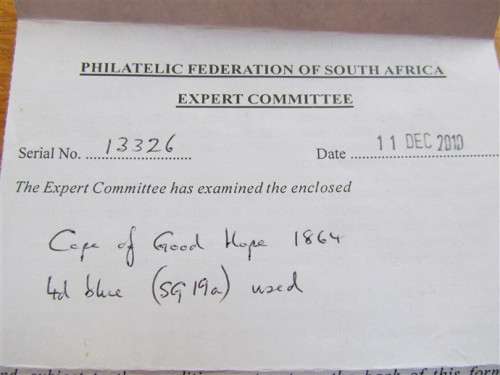 PHILATELIC FEDERATION OF SOUTH AFRICA
EXPERT COMMITTEE
Serial No. 13326 Date 11 DEC 2010
The Expert Committee has examined the enclosed
Cape of Good Hope 1864
4d blue (SG19a) used
subject to the
on the back of this form